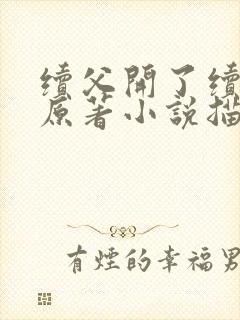 續父開了續
原著小說描
有煙的幸福男